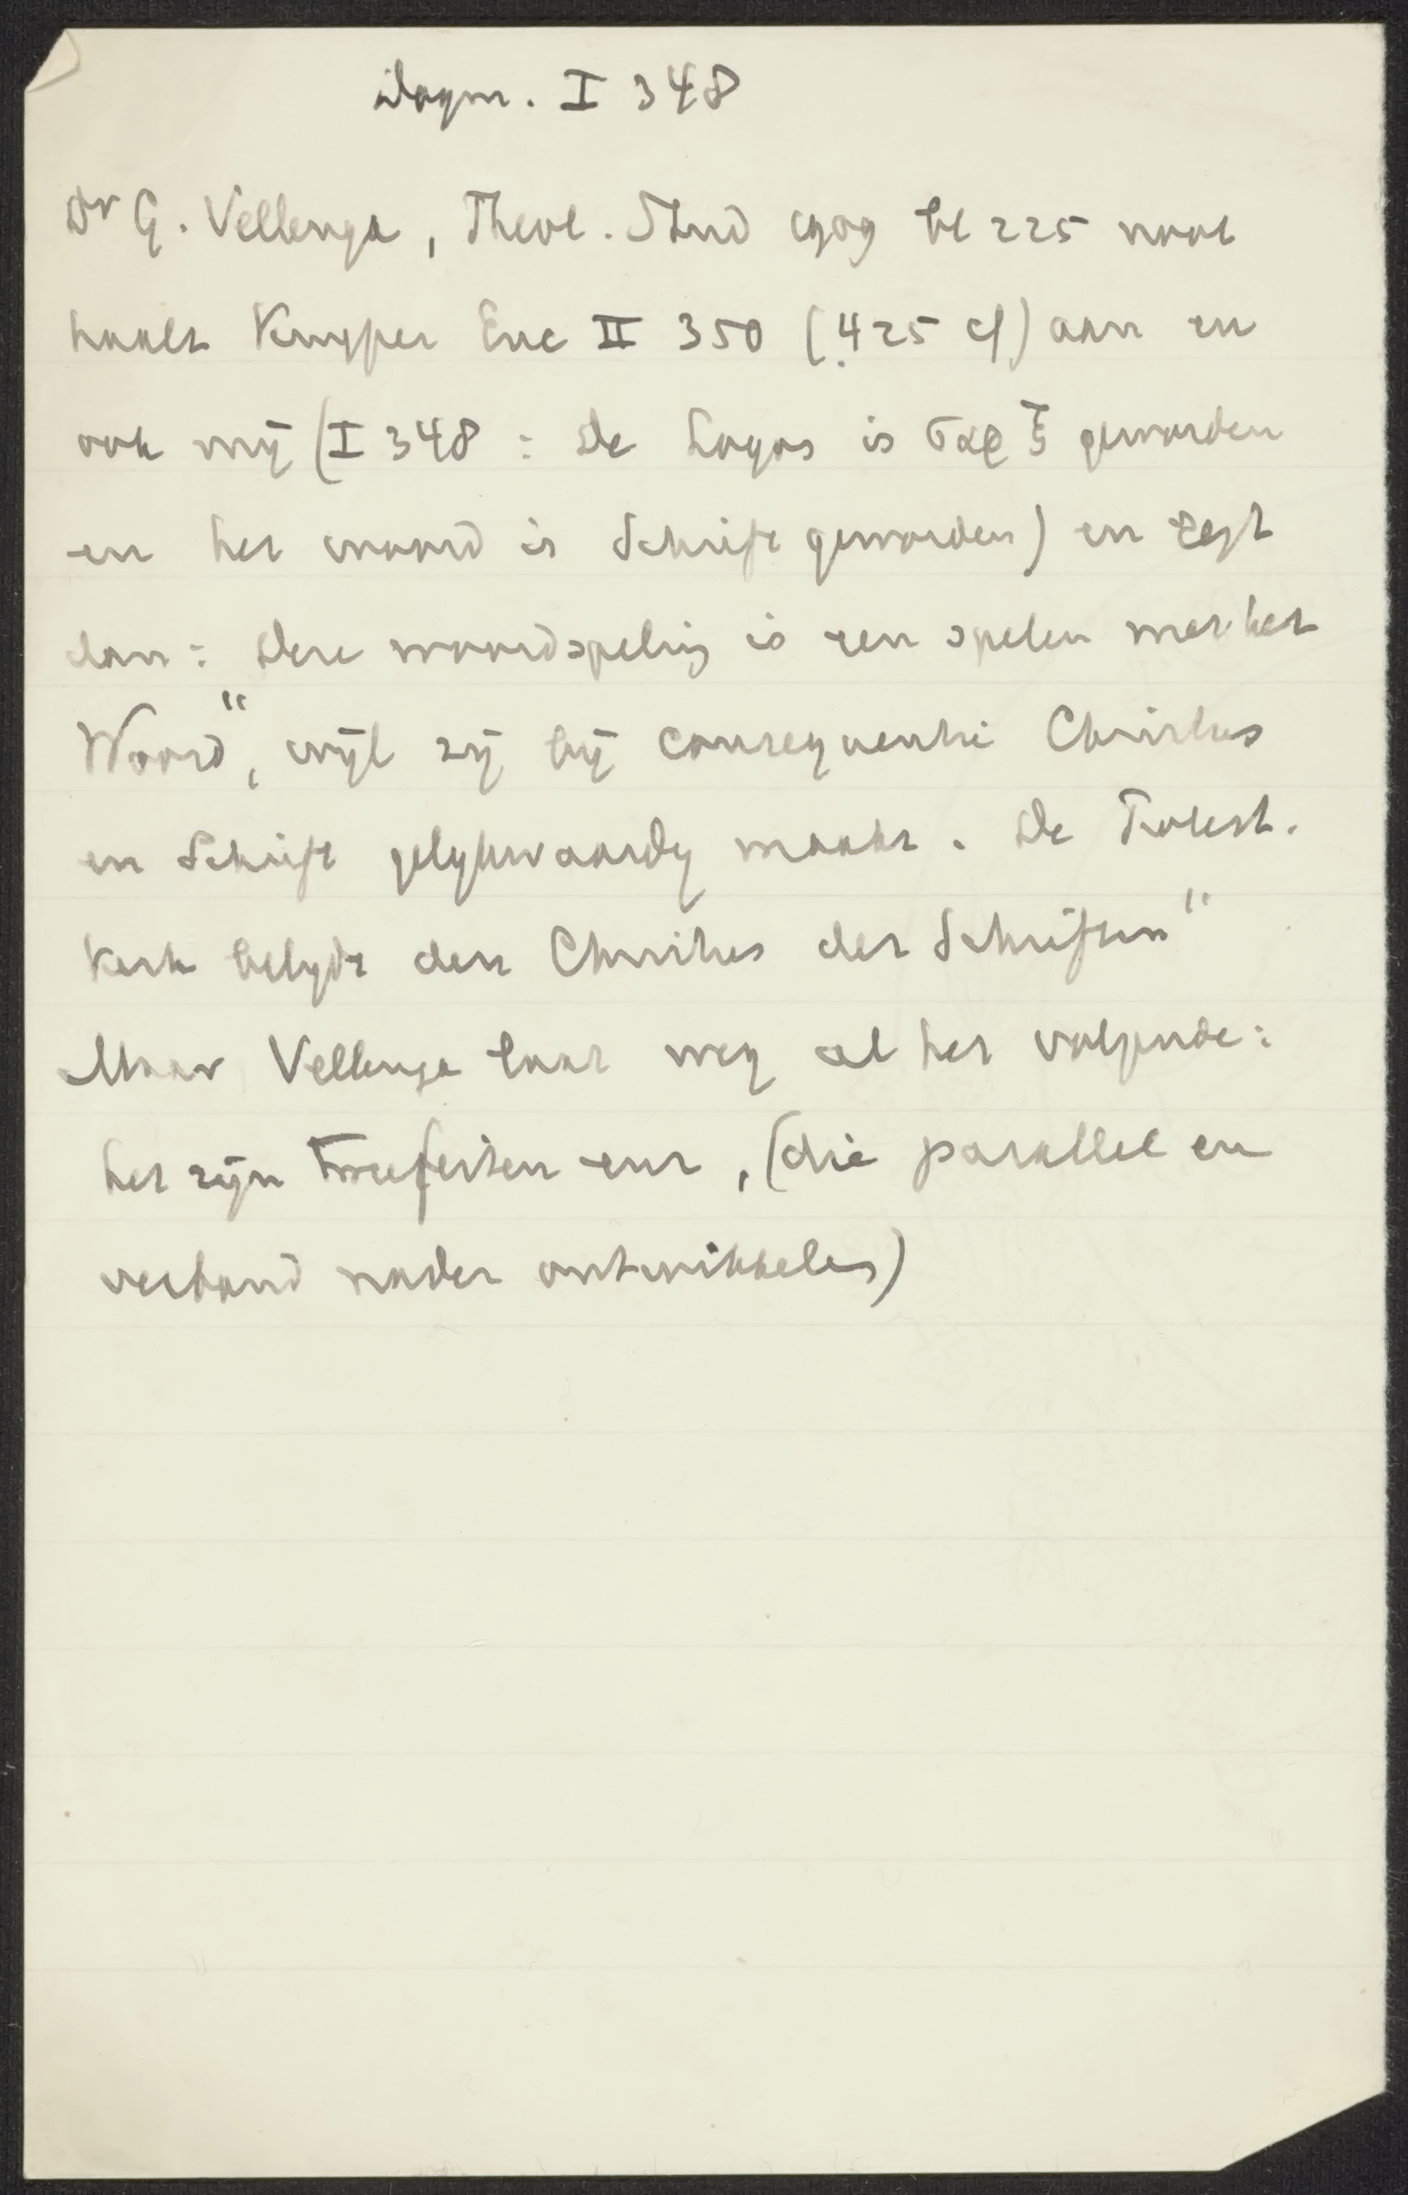 Dogm. I 348
Dr G. Vellenga, Theol. Stud 1909 bl 225 noot
haalt Kuyper Enc II 350 (425 cf) aan en
ook mij (I 348: De Logos is σαρξ geworden
en het woord is Schrift geworden) en zegt
dan: Deze woordspeling is een spelen met het
Woord", wijl zij bij consequentie Christus
en Schrift gelijkwaardig maakt. De Protest.
Kerk belijdt den Christus der Schriften"
Maar Vellenga laat weg al het volgende:
het zijn twee feiten enz, (die parallel en
verband nader ontwikkelen)